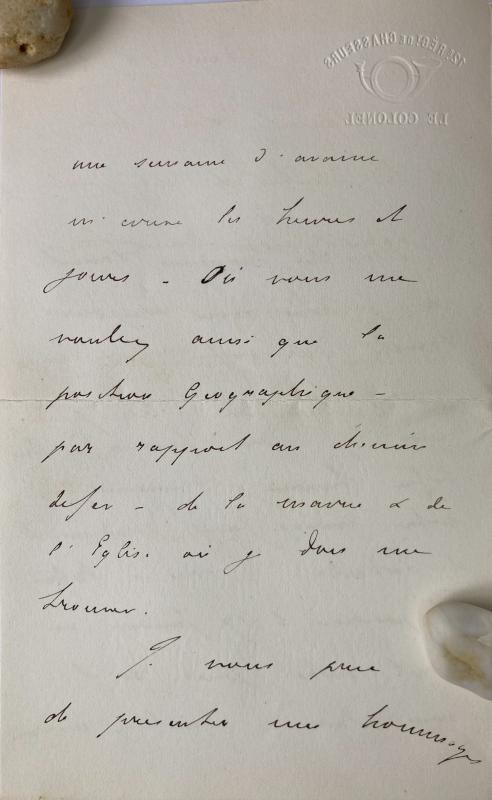 12E RÉGT DE CHASSEURS
LE COLONEL
une semaine d'avance
les heures et
jours - Où vous me
voulez ainsi que la
position Géographique -
par rapport au chemin
de fer - de la mairie & de
l'Eglise où je dois me
trouver.
Je vous prie
de presenter mes hommages